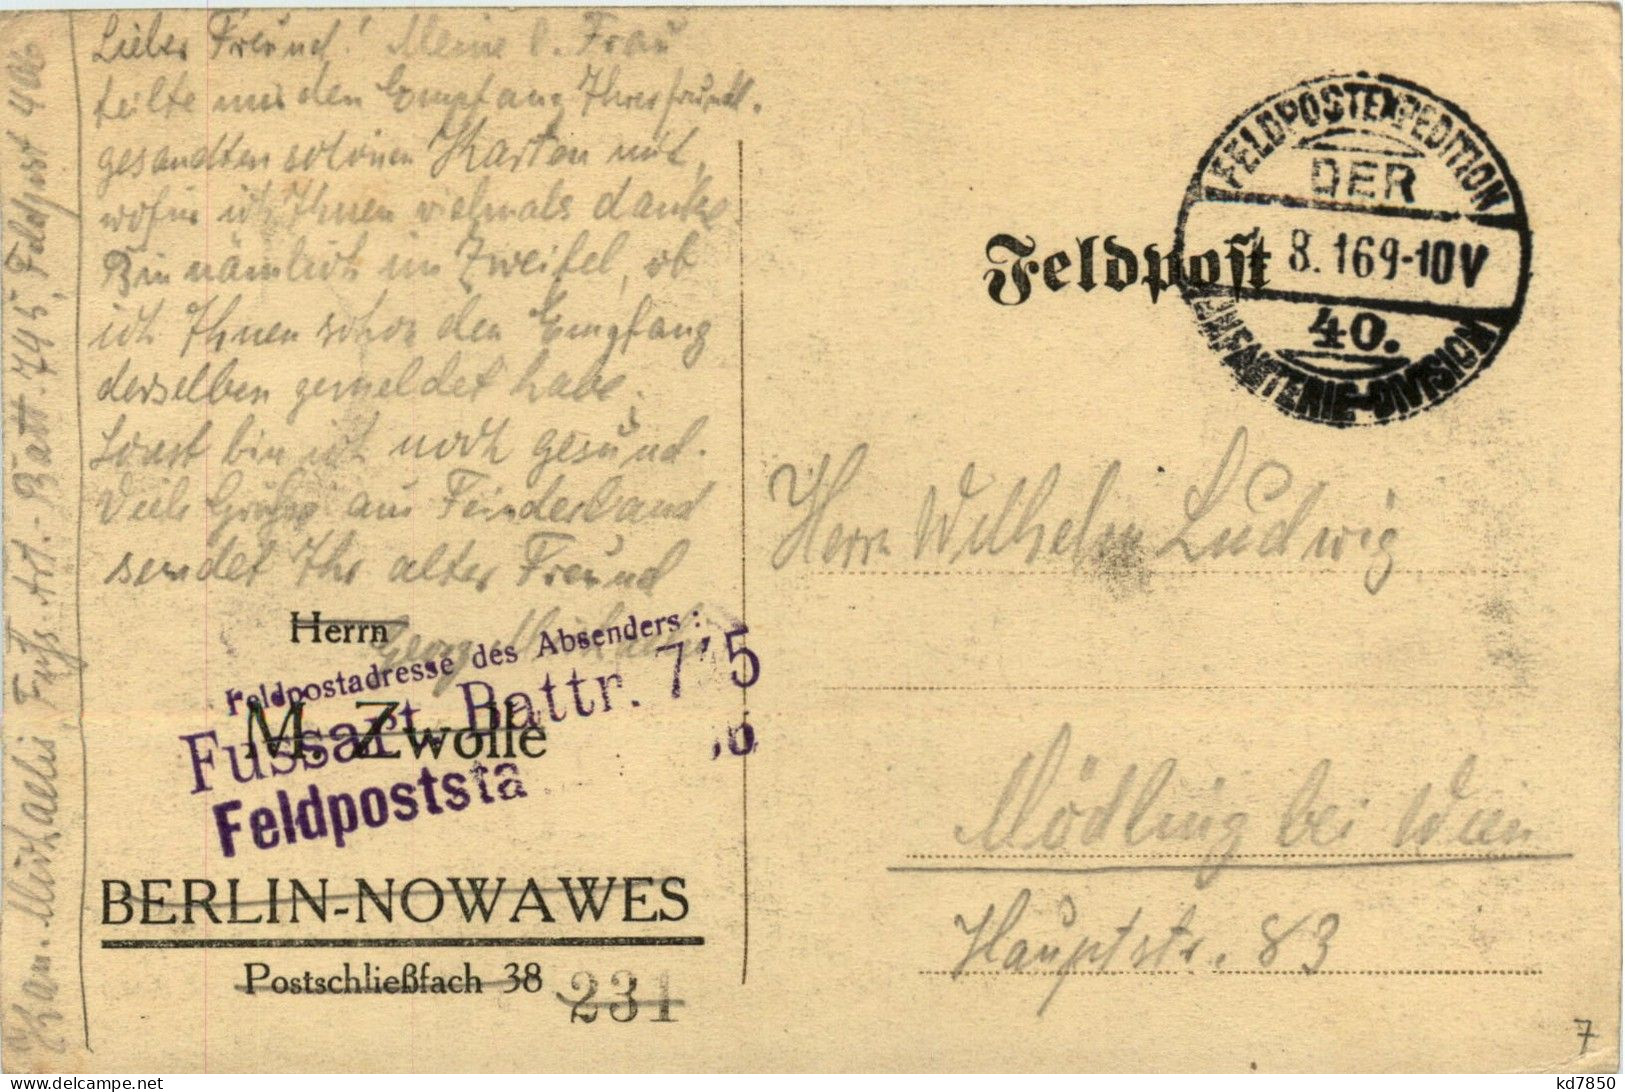 Lieber Freund! Meine l. Frau
teilte mir den Empfang Ihrer freundl.
gesandten schönen Karten mit,
wofür ich Ihnen vielmals danke.
Bin nämlich im Zweifel, ob
ich Ihnen schon den Empfang
derselben gemeldet habe.
Sonst bin ich noch gesund.
Viele Grüße aus Feindesland
sendet Ihr alter Freund
Georg Michaelis
Kan. Michaelis, Fuß-Art.-Batt. 745, Feldpost 406
Herrn
M. Zwolle
BERLIN-NOWAWES
Postschließfach 38
231
Feldpostadresse des Absenders:
Fussart. Battr. 745
Feldpoststa
Feldpost
FELDPOSTEXPEDITION
DER
8.16 9-10V
40.
INFANTERIE-DIVISION
Herrn Wilhelm Ludwig
Mödling bei Wien
Hauptstr. 83
7
kd7850